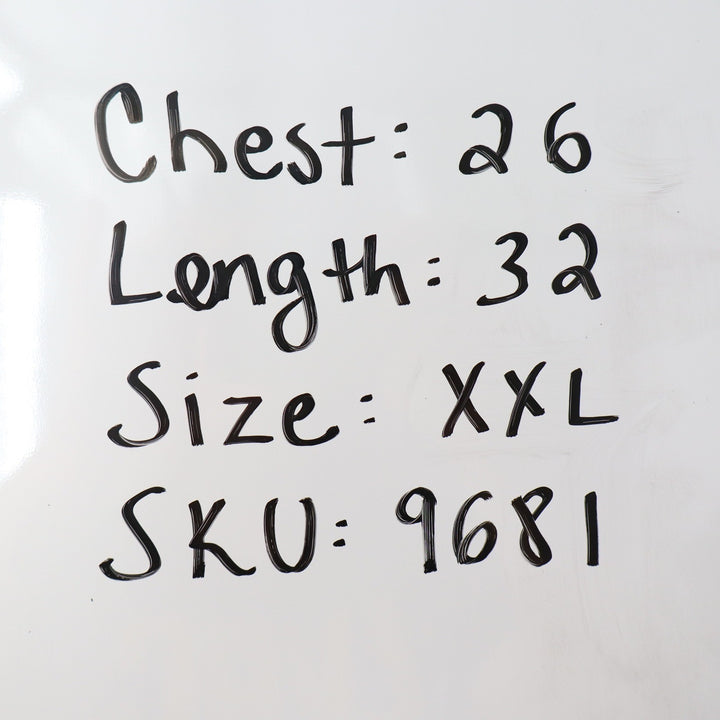 Chest: 26
Length: 32
Size: XXL
SKU: 9681